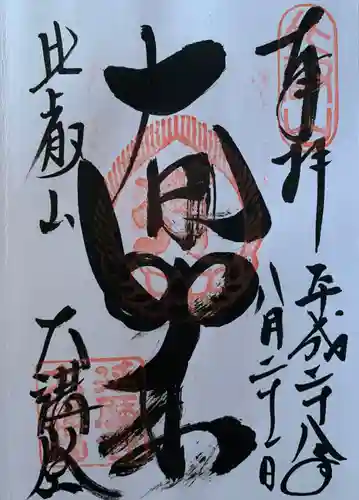 奉拝
平成二十八年
八月二十一日
大日如来
比叡山
大講堂